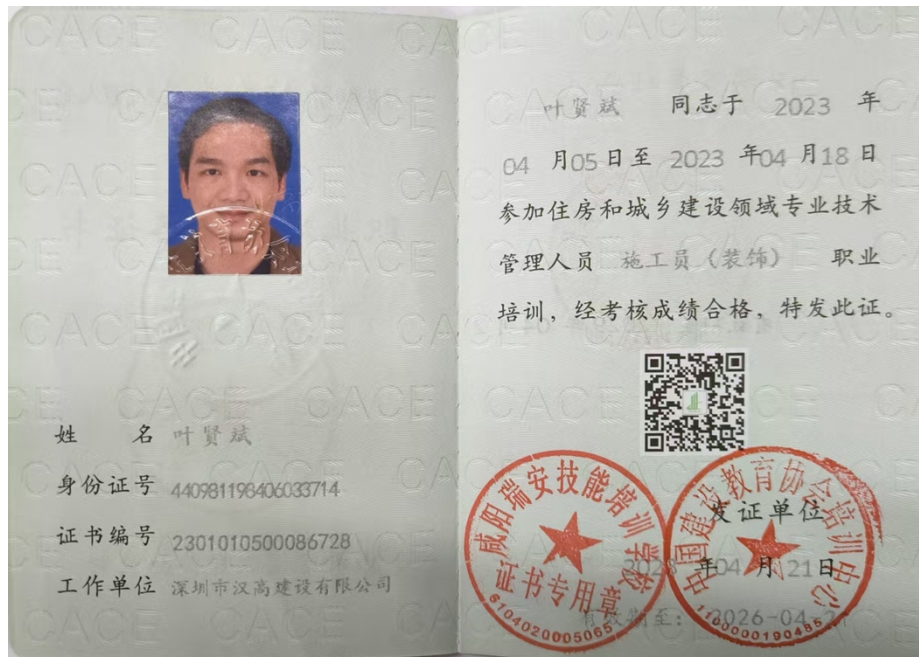 姓 名 叶贤斌
身份证号 440981198406033714
证书编号 2301010500086728
工作单位 深圳市汉高建设有限公司
叶贤斌 同志于 2023 年
04 月05日至 2023 年04 月18 日
参加住房和城乡建设领域专业技术
管理人员 施工员（装饰） 职业
培训，经考核成绩合格，特发此证。
咸阳瑞安技能培训学校
证书专用章
6104020005065
中国建设教育协会培训中心
1100000190485
发证单位
2023 年04 月 21日
有效期至：2026-04-21
CACE